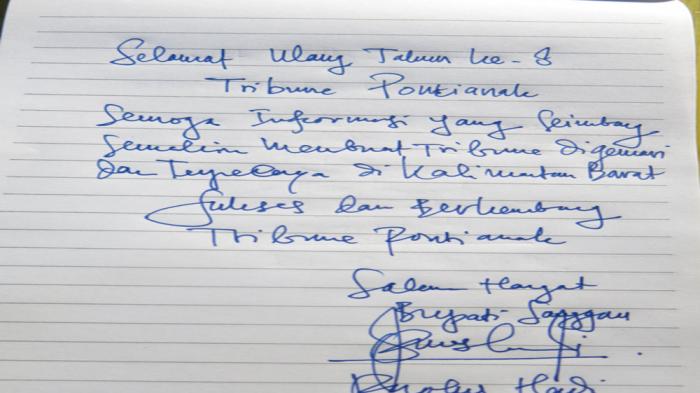 Selamat Ulang Tahun ke-8
Tribune Pontianak
Semoga Informasi yang Seimbang
Semakin Membuat Tribune Digemari
dan Terpercaya di Kalimantan Barat
Sukses dan Berkembang
Tribune Pontianak
Salam Hangat
Bupati Sanggau
Paolus Hadi